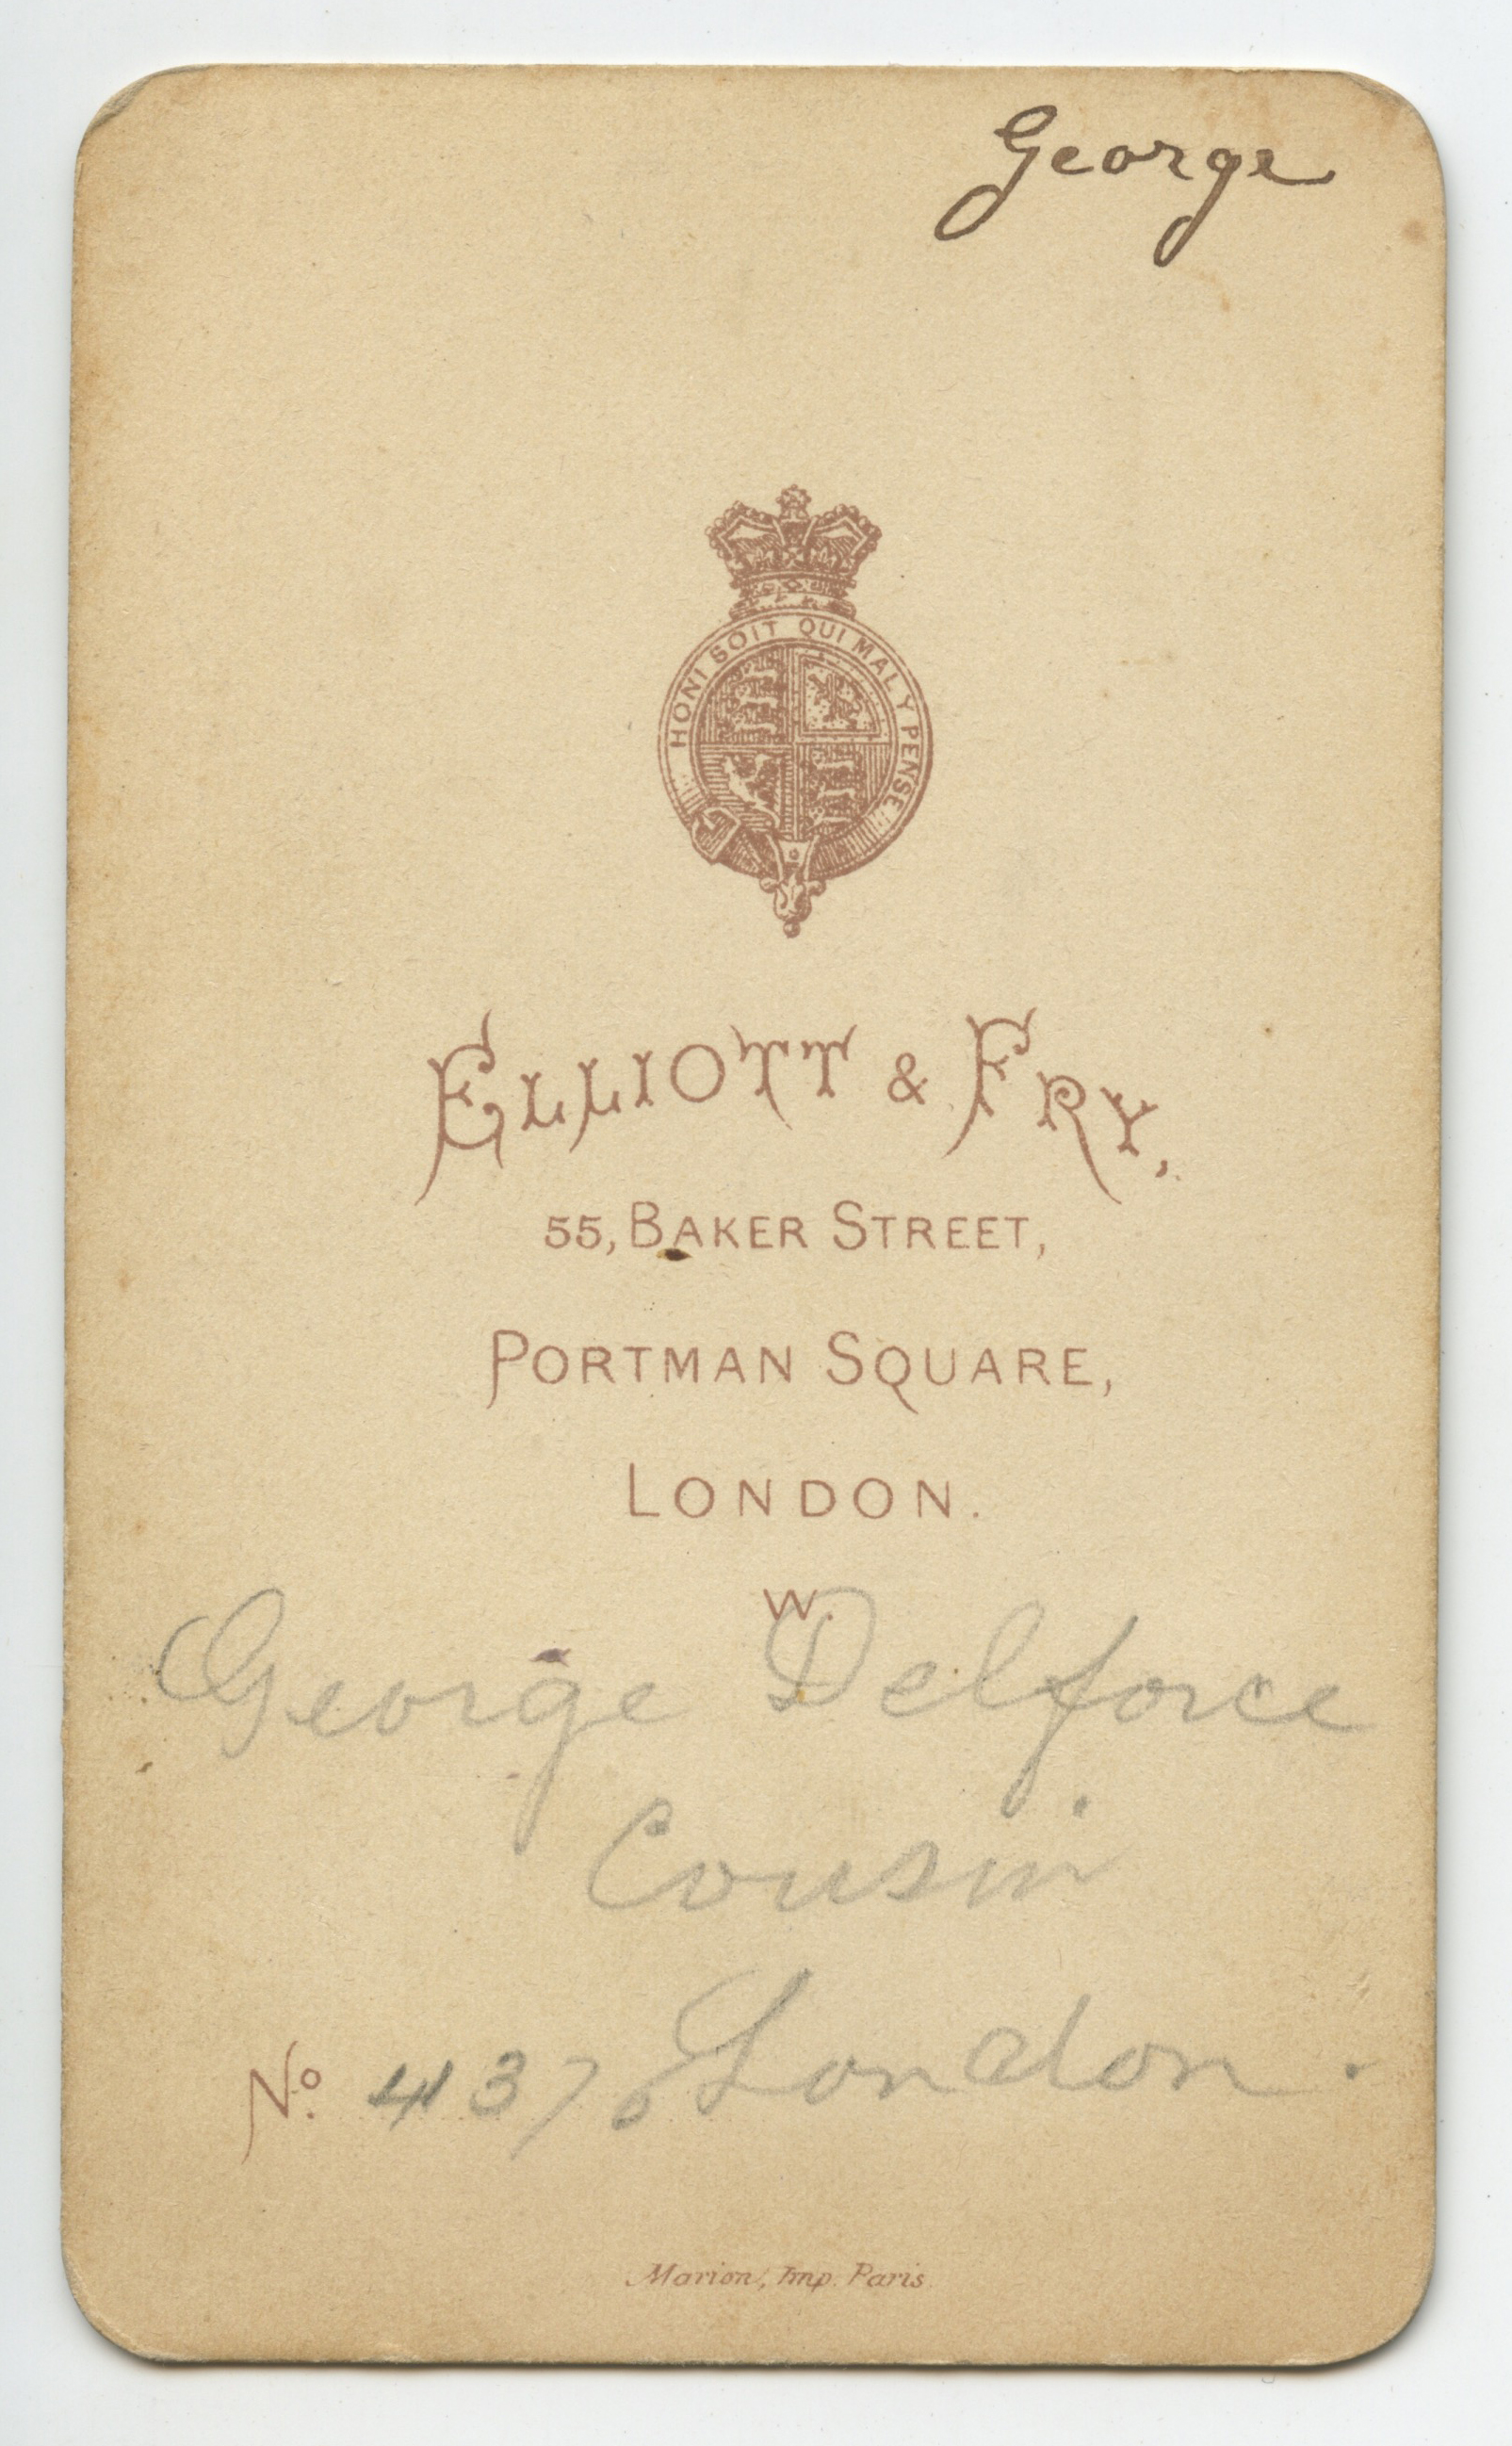 George
HONI SOIT QUI MAL Y PENSE
ELLIOTT & FRY,
55, BAKER STREET,
PORTMAN SQUARE,
LONDON.
W.
George Delforce
Cousin
London.
No. 4376
Marion, Imp. Paris